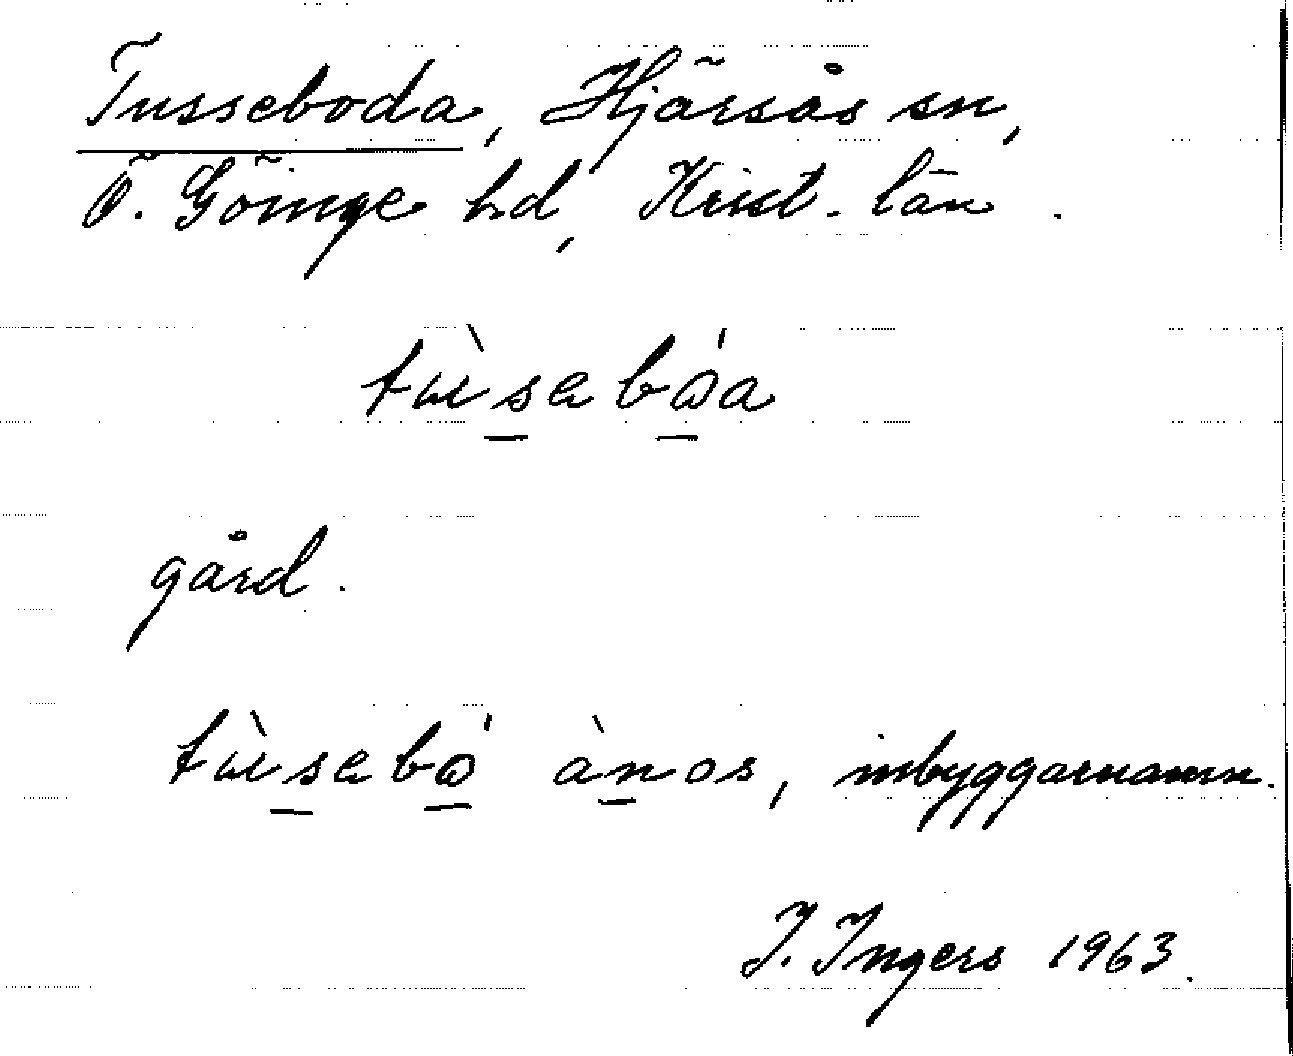 Tusseboda, Hjärsås sn,
Ö. Göinge hd, Krist. län.
tùsebǻa
gård.
tùsebǻ ànos, inbyggarnamn.
I. Ingers 1963.